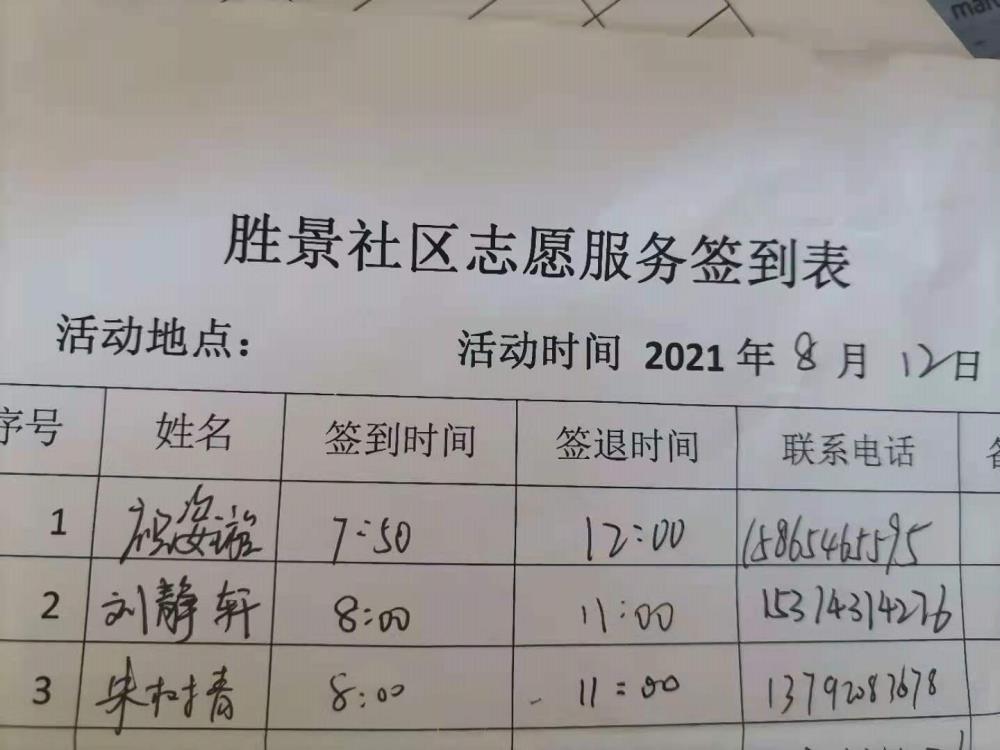 胜景社区志愿服务签到表
活动地点： 活动时间 2021 年 8 月 12日
序号 姓名 签到时间 签退时间 联系电话
1 7:50 12:00 15865465595
2 刘静轩 8:00 11:00 15314314276
3 8:00 11:00 13792083678